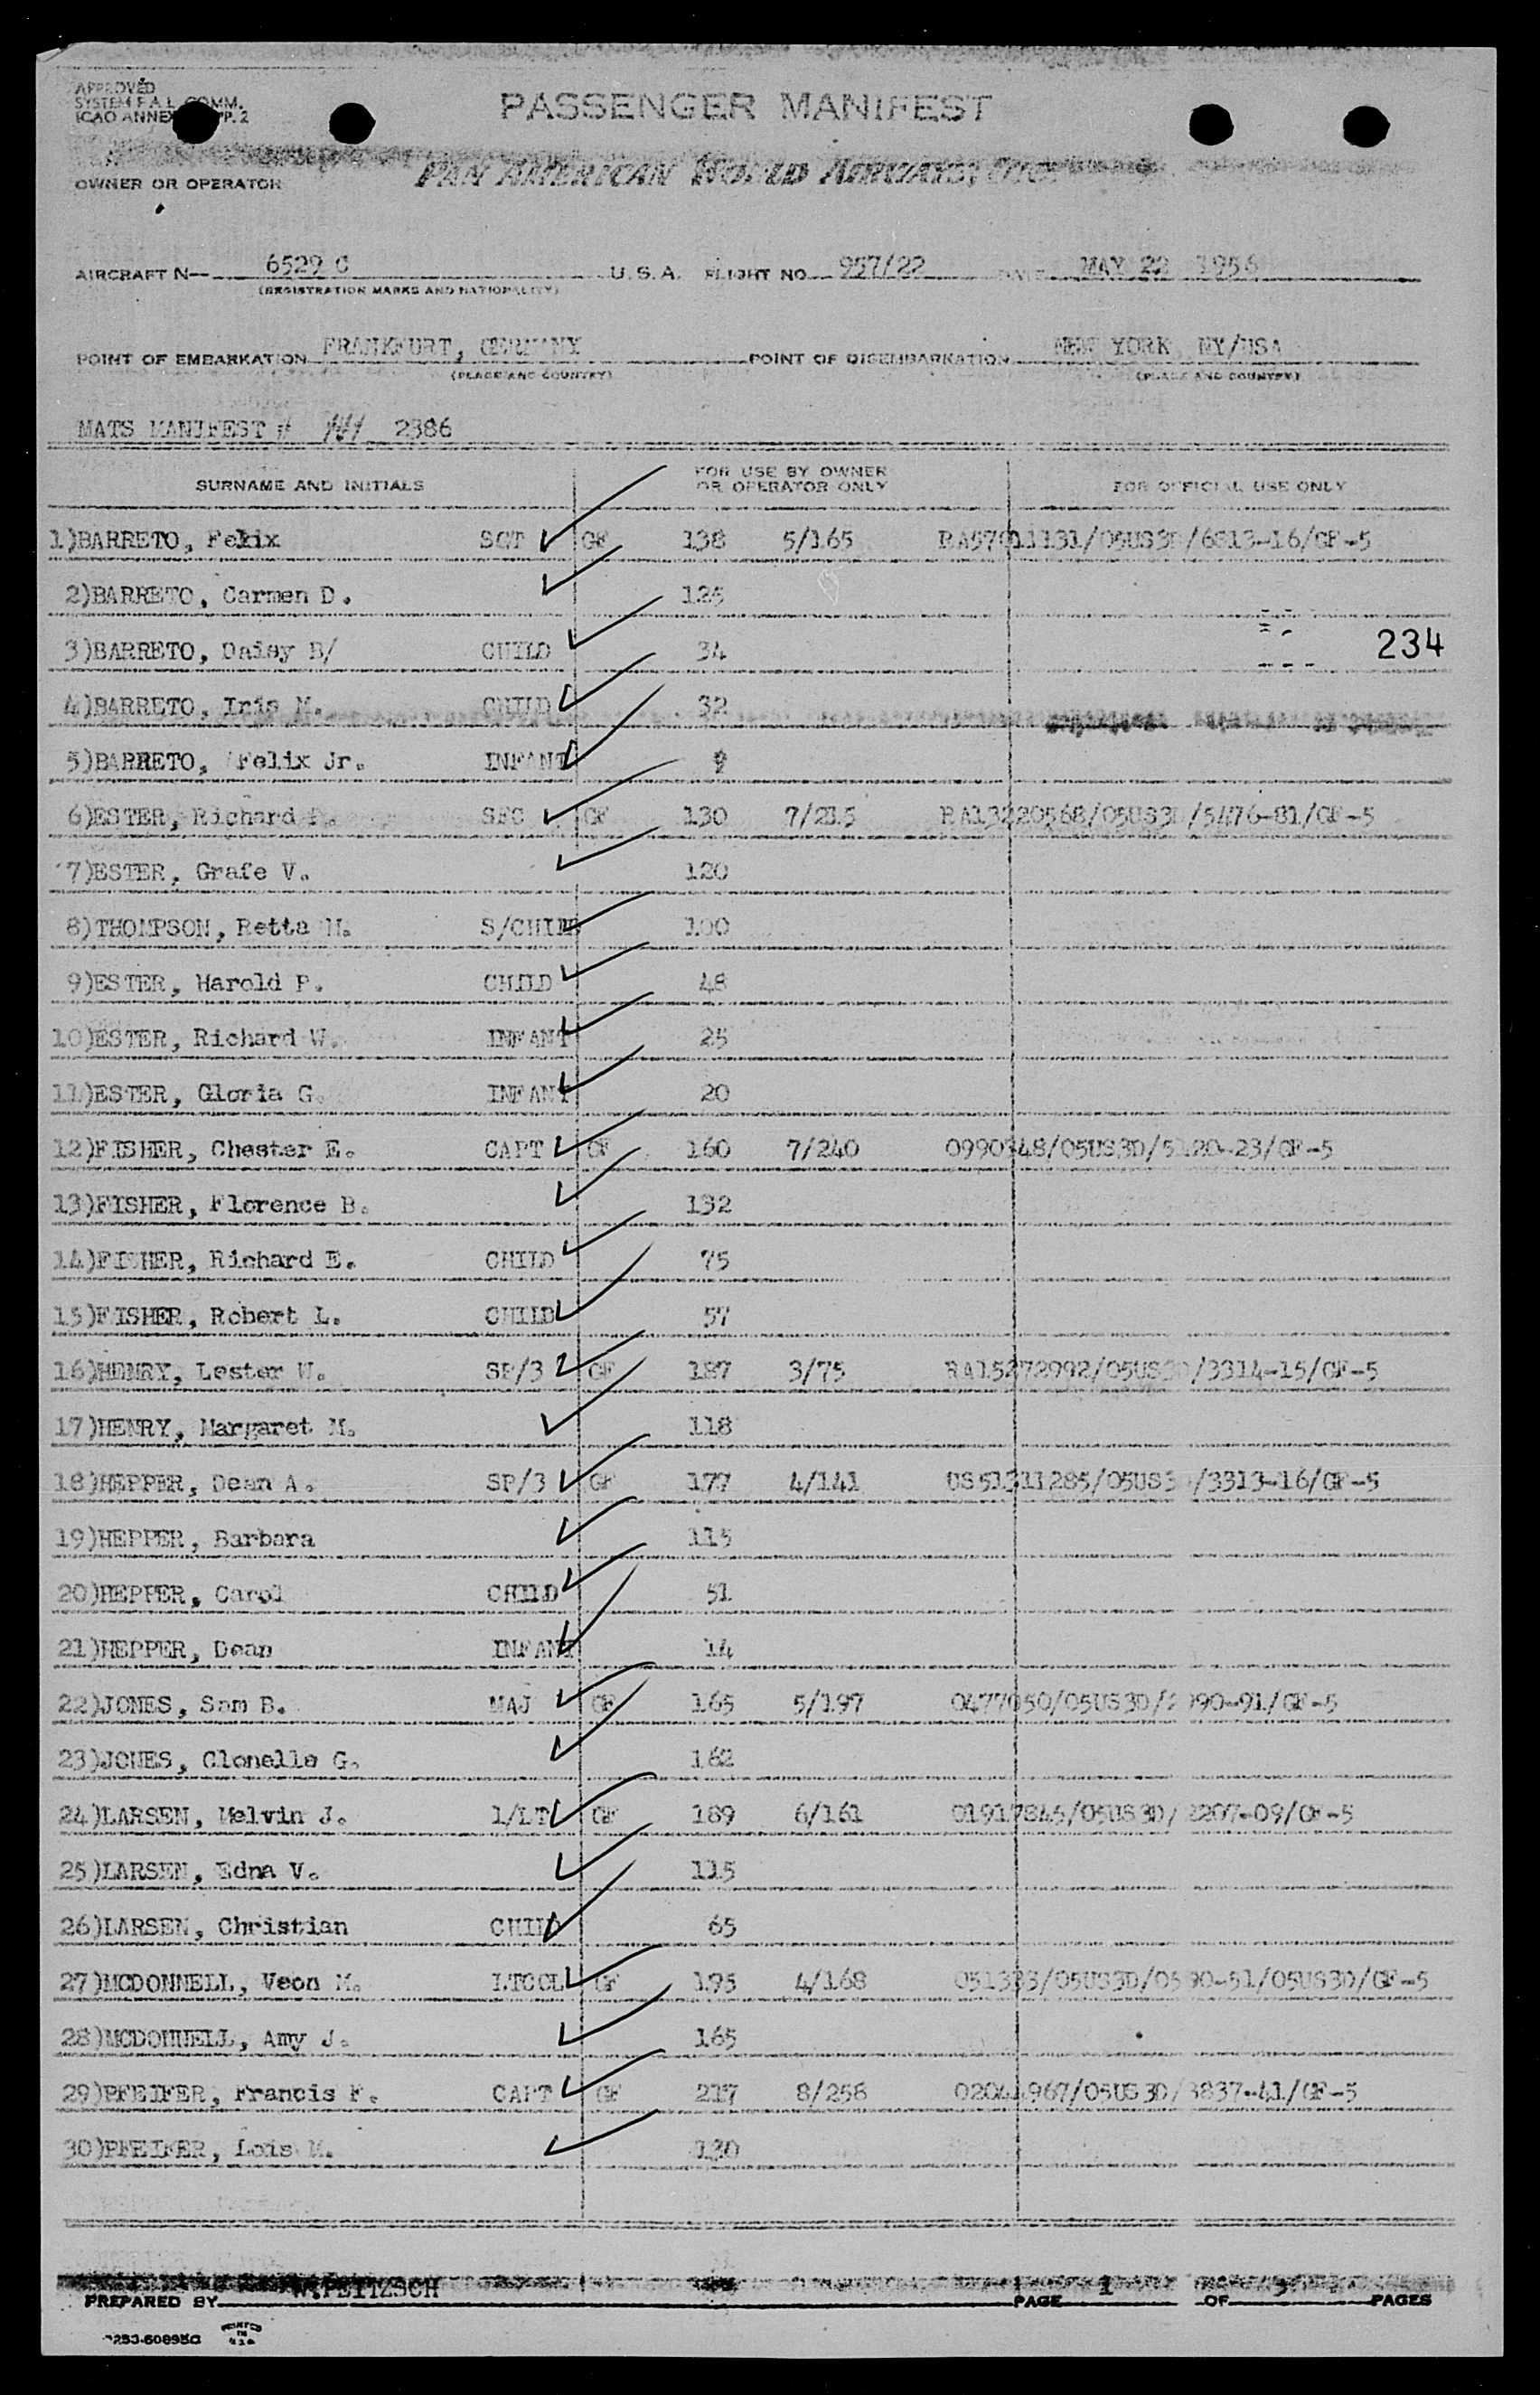 APPROVED
SYSTEM F.A.L. COMM.
ICAO ANNEX PP. 2
PASSENGER MANIFEST
OWNER OR OPERATOR
PAN AMERICAN WORLD AIRWAYS, INC.
AIRCRAFT N— 6529 C U.S.A. FLIGHT NO. 957/22 DATE MAY 22 1956
(REGISTRATION MARKS AND NATIONALITY)
POINT OF EMBARKATION FRANKFURT, GERMANY POINT OF DISEMBARKATION NEW YORK NY/USA
(PLACE AND COUNTRY) (PLACE AND COUNTRY)
MATS MANIFEST # 2386
SURNAME AND INITIALS FOR USE BY OWNER OR OPERATOR ONLY FOR OFFICIAL USE ONLY
1)BARRETO, Felix SGT GF 138 5/165 RA57011131/05US3D/6813-16/GF-5
2)BARRETO, Carmen D. 125
3)BARRETO, Daisy B/ CHILD 34
234
4)BARRETO, Iris M. CHILD 32
5)BARRETO, Felix Jr. INFANT 9
6)ESTER, Richard SFC GF 130 7/215 RA13220568/05US3D/5476-81/GF-5
7)ESTER, Grafe V. 120
8)THOMPSON, Retta M. S/CHILD 100
9)ESTER, Harold P. CHILD 48
10)ESTER, Richard W. INFANT 25
11)ESTER, Gloria G. INFANT 20
12)FISHER, Chester E. CAPT GF 160 7/240 0990348/05US3D/5120-23/GF-5
13)FISHER, Florence B. 132
14)FISHER, Richard E. CHILD 75
15)FISHER, Robert L. CHILD 57
16)HENRY, Lester W. SP/3 GF 187 3/75 RA15272992/05US3D/3314-15/GF-5
17)HENRY, Margaret M. 118
18)HEPPER, Dean A. SP/3 GF 177 4/141 US51311285/05US3 /3313-16/GF-5
19)HEPPER, Barbara 115
20)HEPPER, Carol CHILD 51
21)HEPPER, Dean INFANT 14
22)JONES, Sam B. MAJ GF 165 5/197 0477050/05US3D/ 90-91/GF-5
23)JONES, Clonelle G. 162
24)LARSEN, Melvin J. 1/LT GF 189 6/161 01917845/05US3D/ 2207-09/GF-5
25)LARSEN, Edna V. 115
26)LARSEN, Christian CHILD 65
27)MCDONNELL, Veon M. LTCOL GF 195 4/168 051333/05US3D/05 90-51/05US3D/GF-5
28)MCDONNELL, Amy J. 165
29)PFEIFER, Francis F. CAPT GF 217 8/258 02044967/05US3D/3837-41/GF-5
30)PFEIFER, Lois M. 130
PREPARED BY W.PEITZSCH PAGE 1 OF 3 PAGES
PRINTED
IN
U.S.A.